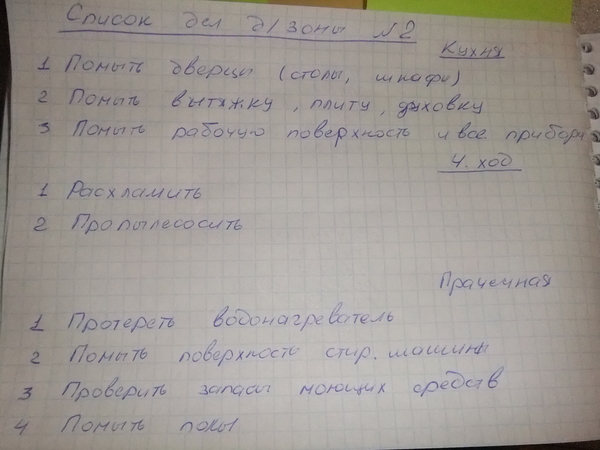 Список дел д/зоны №2
Кухня
1 Помыть дверцы (столы, шкафы)
2 Помыть вытяжку, плиту, духовку
3 Помыть рабочую поверхность и все приборы
Ч. ход
1 Расхламить
2 Пропылесосить
Прачечная
1 Протереть водонагреватель
2 Помыть поверхность стир. машины
3 Проверить запасы моющих средств
4 Помыть полы